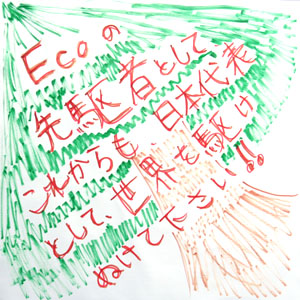 Ecoの
先駆者として
これからも、日本代表
として、世界を駆け
ぬけて下さい!!